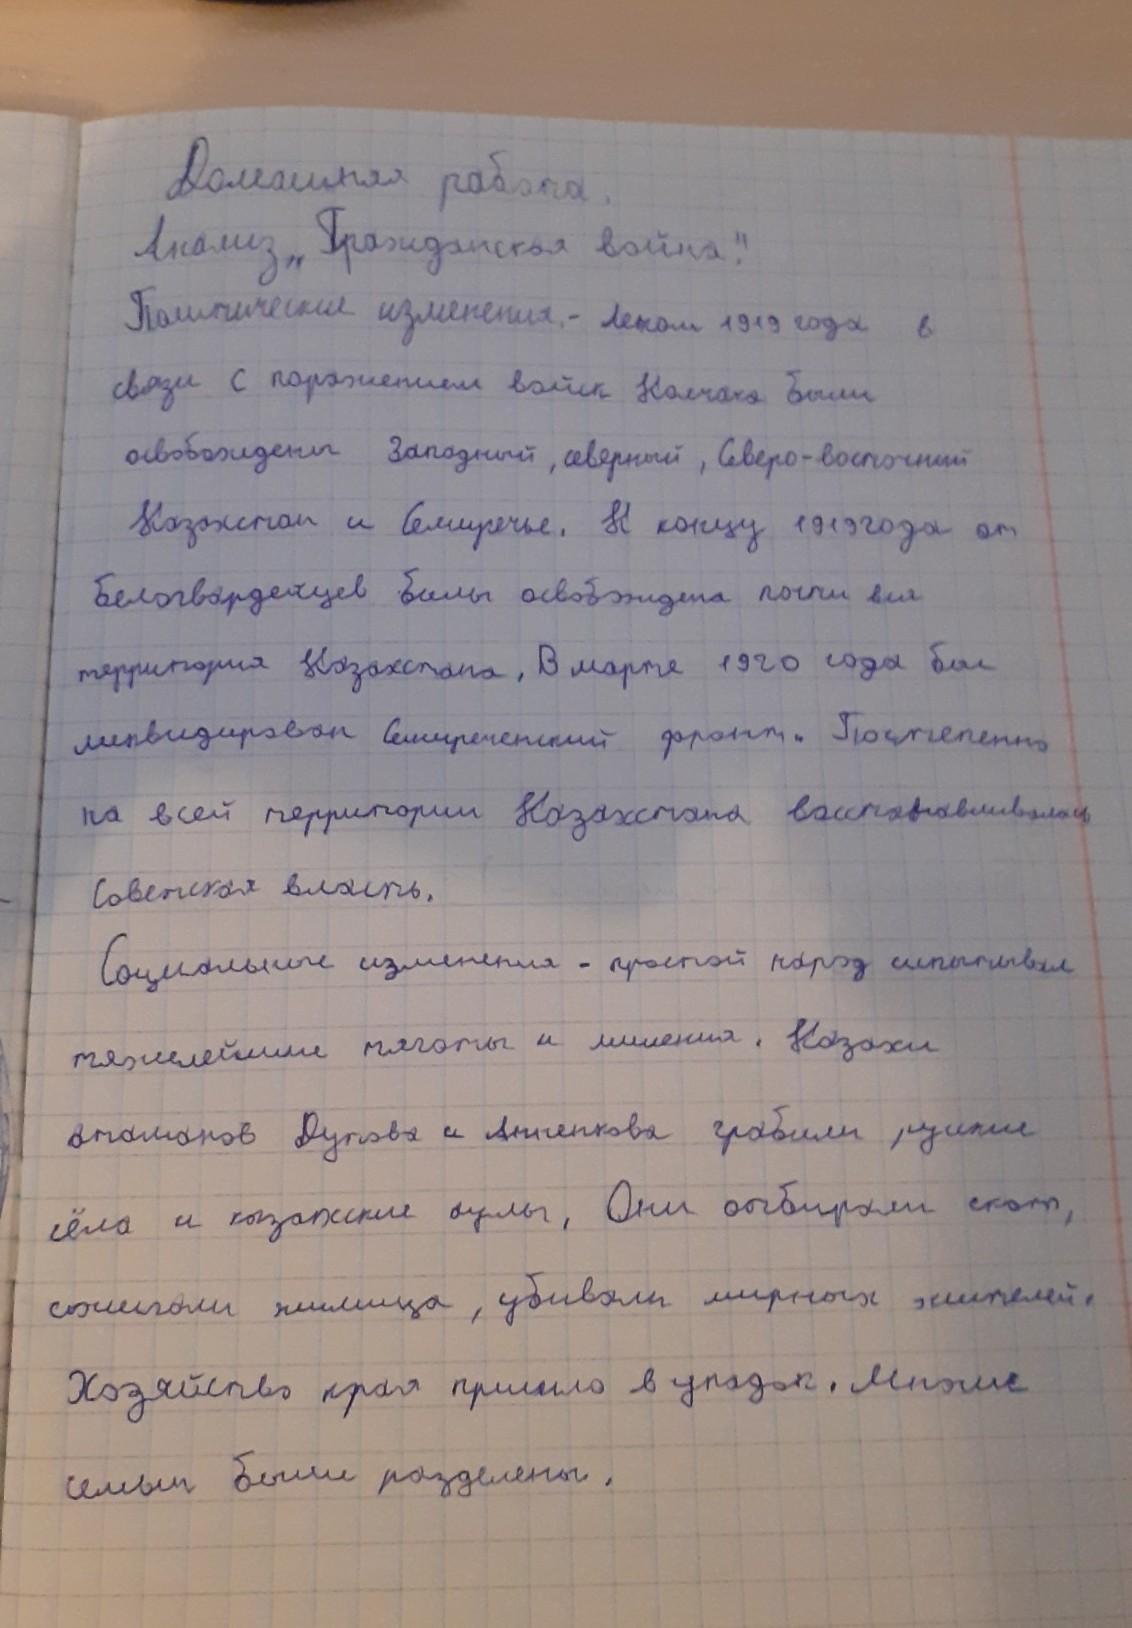 Домашняя работа.
Анализ „Гражданская война."
Политические изменения. - Летом 1919 года в
связи с поражением войск Колчака были
освобождены Западный, северный, Северо-восточный
Казахстан и Семиречье. К концу 1919 года от
белогвардейцев былы освобождена почти вся
территория Казахстана. В марте 1920 года был
ликвидирован Семиреченский фронт. Постепенно
на всей территории Казахстана восстанавливалась
Советская власть.
Социальные изменения - простой народ испытывал
тяжелейшие тяготы и лишения. Казахи
атаманов Дутова и Анненкова грабили русские
сёла и казахские аулы. Они отбирали скот,
сжигали жилища, убивали мирных жителей.
Хозяйство края пришло в упадок. Многие
семьи были разделены.